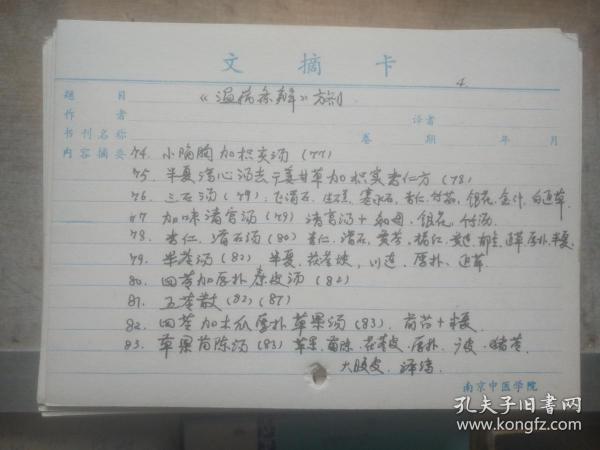 文 摘 卡
4.
题 目 《温病条辨》方剂
作 者 译者
书刊名称 卷 期 年 月
内容摘要 74. 小陷胸加枳实汤 (77)
75. 半夏泻心汤去干姜甘草加枳实杏仁方 (78)
76. 三石汤 (79): 飞滑石、生石羔、寒水石、杏仁、竹茹、银花、金汁、白通草
77 加味清宫汤 (79) 清宫汤+知母、银花、竹沥
78. 杏仁、滑石汤 (80) 杏仁、滑石、黄芩、橘红、黄连、郁金、通草、厚朴、半夏.
79. 半苓汤 (82) 半夏、茯苓块、川连、厚朴、通草
80. 四苓加厚朴秦皮汤 (82)
81. 五苓散 (82) (87)
82. 四苓加木瓜厚朴草果汤 (83). 前方+半夏
83. 草果茵陈汤 (83) 草果、茵陈、茯苓皮、厚朴、广皮、猪苓、
大腹皮、泽泻
南京中医学院
孔夫子旧书网
www.kongfz.com